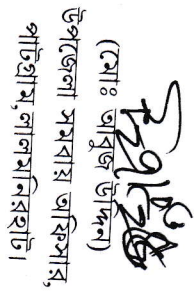 (মোঃ আবুজ উদ্দিন)
উপজেলা সমবায় অফিসার,
পাটগ্রাম, লালমনিরহাট।